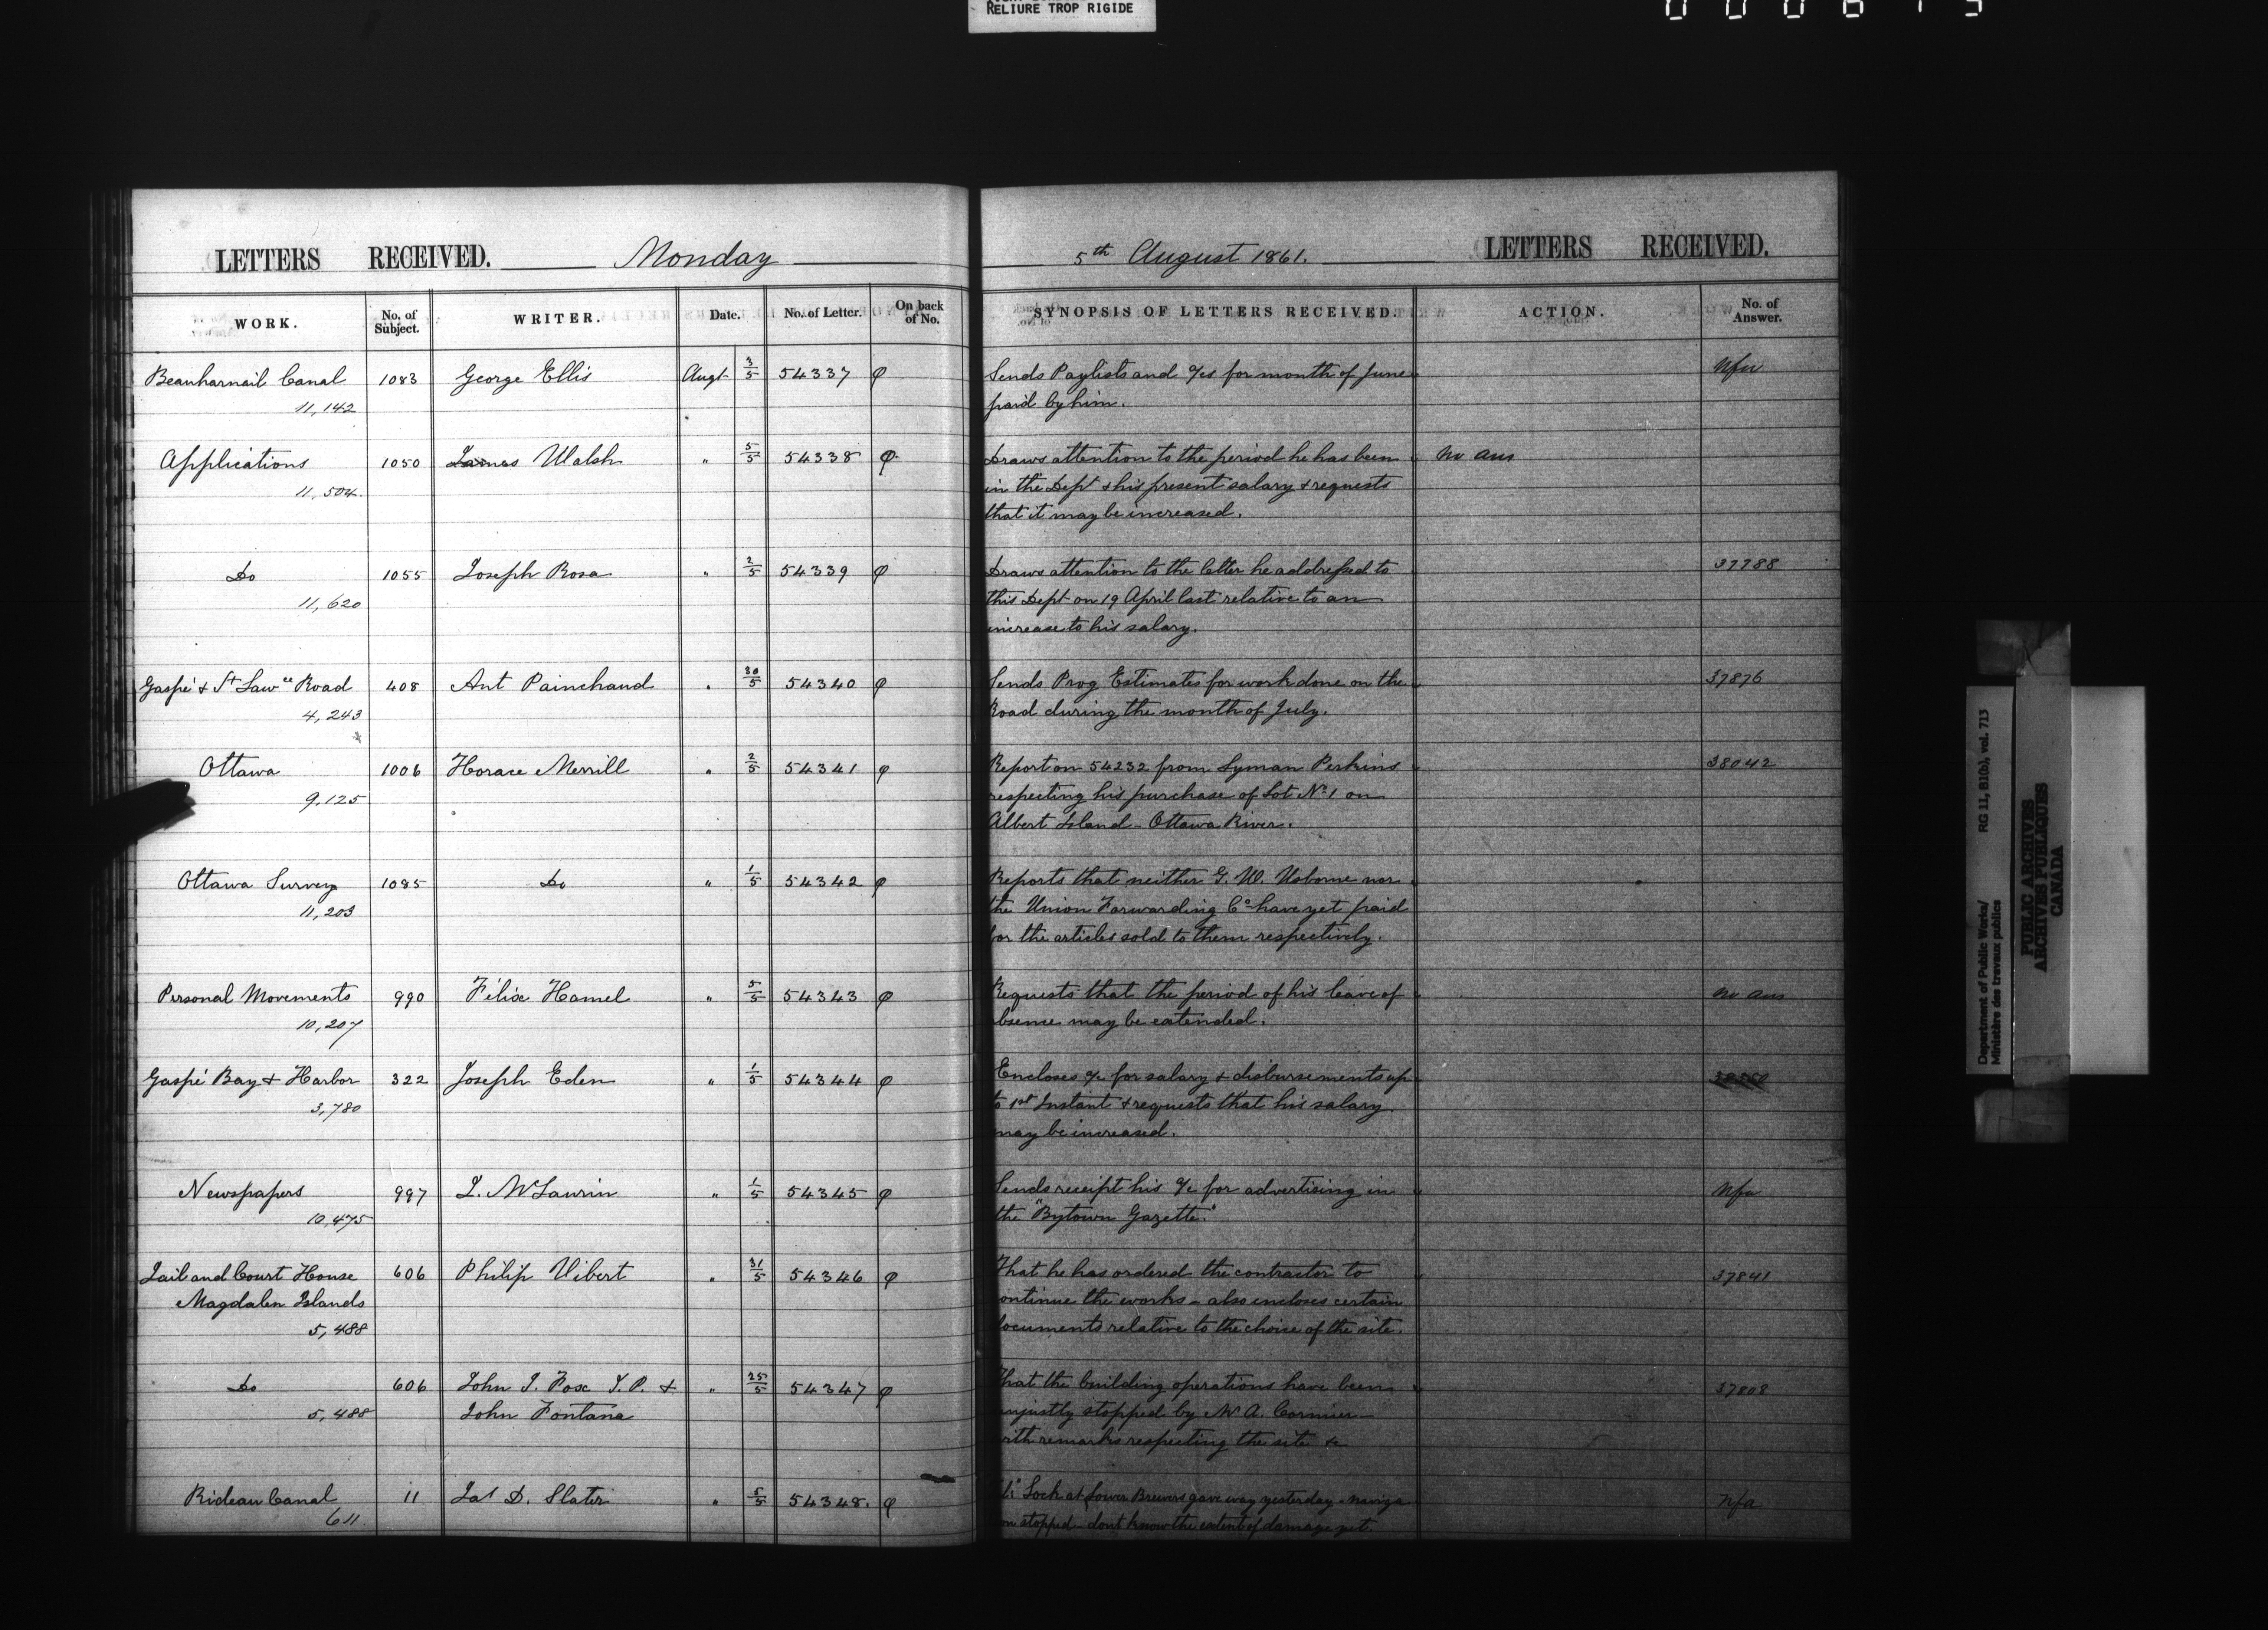 RELIURE TROP RIGIDE
LETTERS RECEIVED. Monday
5th August 1861. LETTERS RECEIVED.
WORK. No. of Subject. WRITER. Date. No. of Letter. On back of No. SYNOPSIS OF LETTERS RECEIVED. ACTION. No. of Answer.
Beauharnail Canal 1083 George Ellis Augt 3/5 54337 φ Sends Paylists and a/cs for month of June Nfa
11,142 paid by him.
Applications 1050 James Walsh " 5/5 54338 φ Draws attention to the period he has been no ans
11,504 in the Dept & his present salary & requests
that it may be increased.
Do 1055 Joseph Rosa " 2/5 54339 φ Draws attention to the letter he addressed to 37788
11,620 this Dept on 19 April last relative to an
increase to his salary.
Gaspé & St Lawce Road 408 Ant Painchaud " 30/5 54340 φ Sends Prog Estimates for work done on the 37876
4,243 Road during the month of July.
Ottawa 1006 Horace Merrill " 2/5 54341 φ Report on 54232 from Lyman Perkins 38042
9,125 respecting his purchase of Lot No 1 on
Albert Island - Ottawa River.
Ottawa Survey 1085 Do " 1/5 54342 φ Reports that neither G. W. Usborne nor
11,203 the Union Forwarding Co have yet paid
for the articles sold to them respectively.
Personal Movements 990 Félix Hamel " 5/5 54343 φ Requests that the period of his leave of no ans
10,207 absence may be extended.
Gaspé Bay & Harbor 322 Joseph Eden " 1/5 54344 φ Encloses a/c for salary & disbursements up
3,780 to 1st Instant & requests that his salary
may be increased.
Newspapers 997 J. McLaurin " 1/5 54345 φ Sends receipt his a/c for advertising in Nfa
10,475 the "Bytown Gazette."
Jail and Court House 606 Philip Vibert " 31/5 54346 φ That he has ordered the contractor to 37841
Magdalen Islands continue the works - also encloses certain
5,488 documents relative to the choice of the site.
Do 606 John J. Fox J.P. & " 25/5 54347 φ That the building operations have been 37808
5,488 John Fontana unjustly stopped by Mr A. Cormier
with remarks respecting the site &c
Rideau Canal 11 Jas D. Slater " 5/5 54348. φ Lock at Lower Brewers gave way yesterday - naviga Nfa
611 on stopped - dont know the extent of damage yet.
Department of Public Works/ RG 11, B1(b), vol. 713
Ministère des travaux publics
PUBLIC ARCHIVES
ARCHIVES PUBLIQUES
CANADA